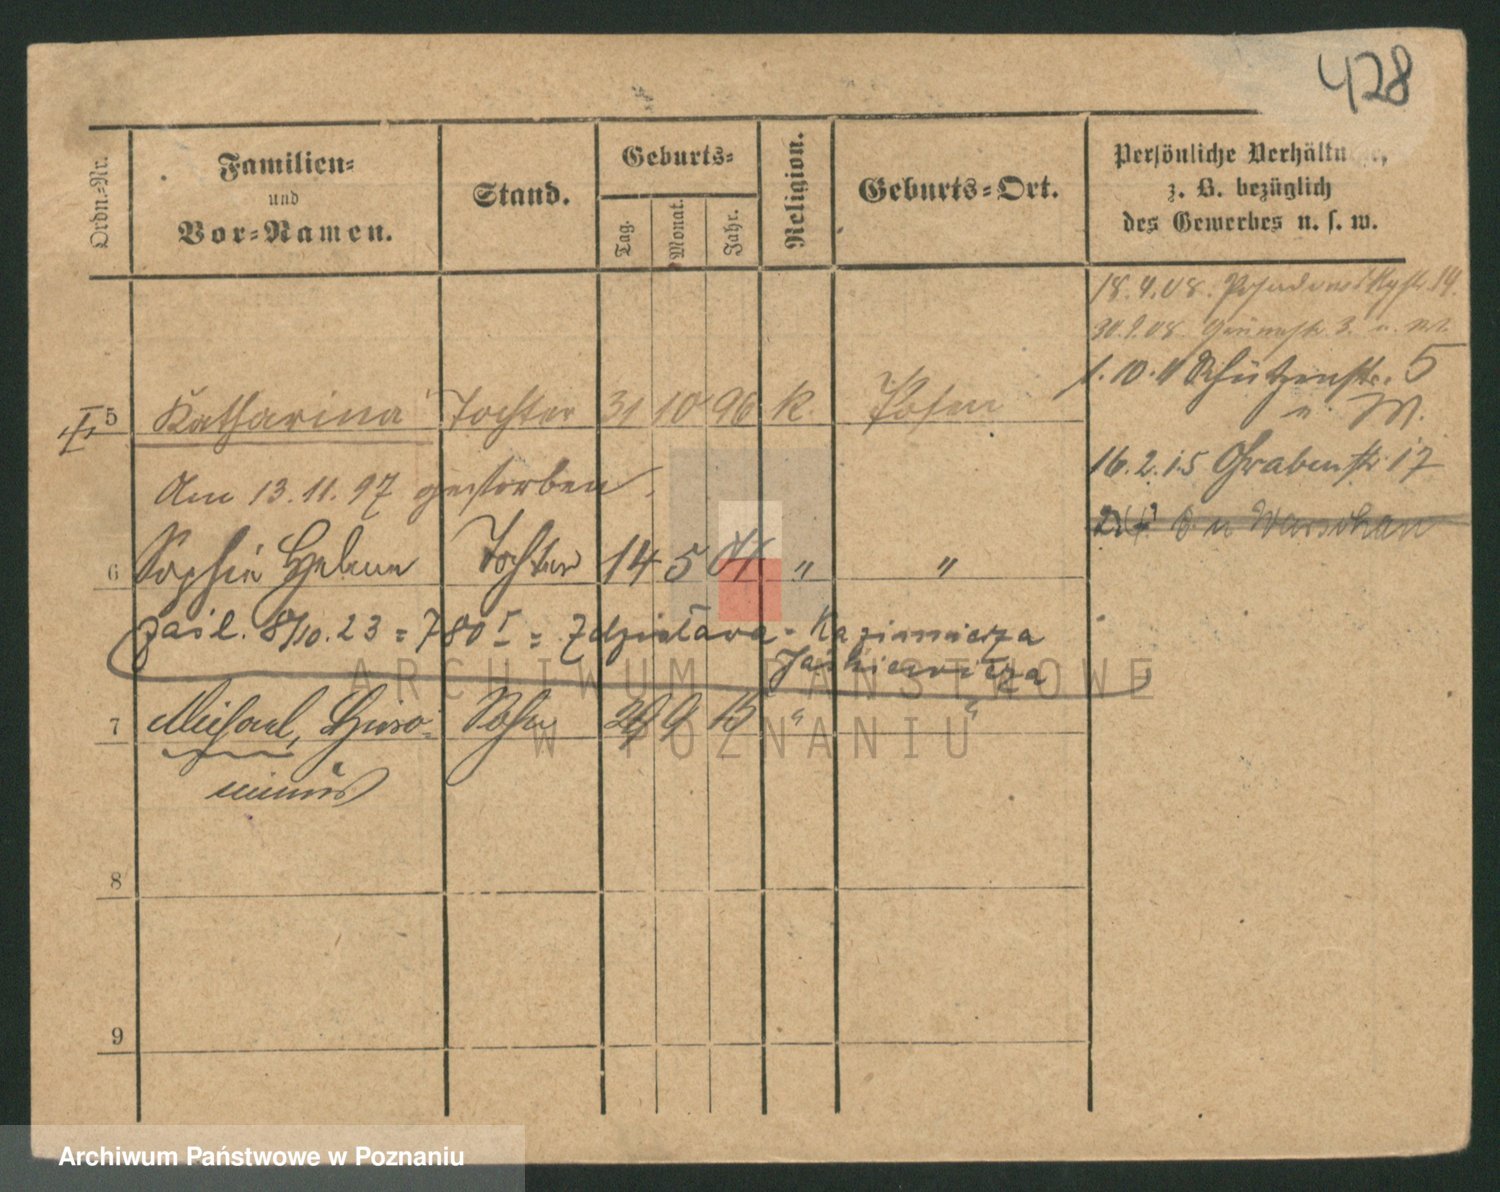 428
Ordn.=Nr.
Familien=
und
Vor=Namen.
Stand.
Geburts=
Tag.
Monat.
Jahr.
Religion.
Geburts=Ort.
Persönliche
z. B. bezüglich
des Gewerbes u. s. w.
18.4.08.
30.9.08. 3. u. M.
1.10.11 Schützenstr. 5
u. M.
5 Katharina Tochter 31 10 96 k. Posen
16.2.15 Grabenstr. 17
Am 13.11.97 gestorben.
Warschau
6 Sophie Helene Tochter 14 5 01 " "
zasil. 8/10.23 = 780 = Zdzisława - Kazimierza
Jaśkiewicza
7 Michael, Hiero= Sohn 9 " "
nimus
8
9
ARCHIWUM PAŃSTWOWE
W POZNANIU
Archiwum Państwowe w Poznaniu